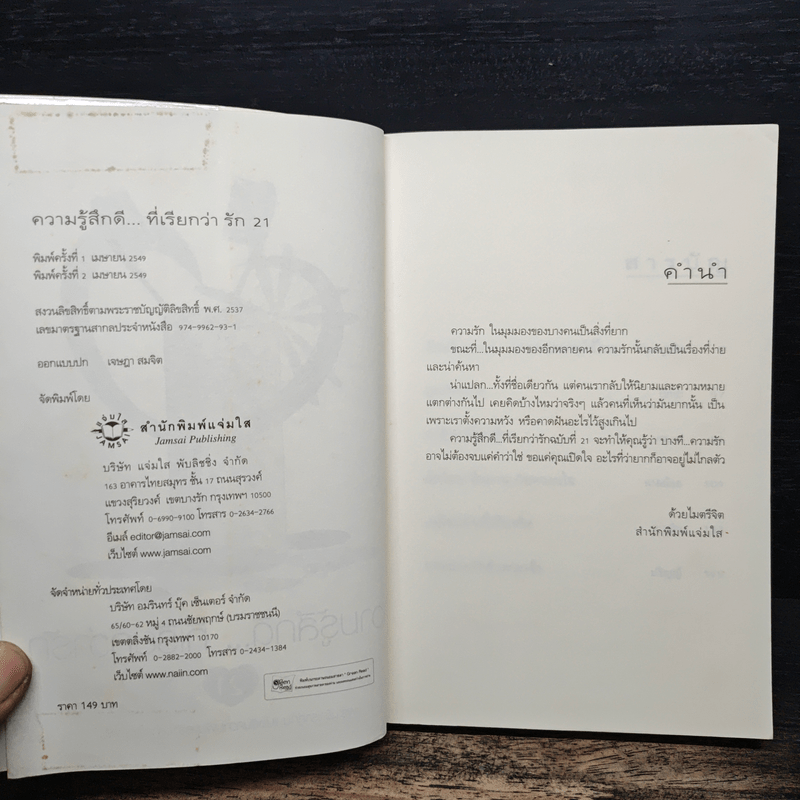 ความรู้สึกดี... ที่เรียกว่า รัก 21
พิมพ์ครั้งที่ 1 เมษายน 2549
พิมพ์ครั้งที่ 2 เมษายน 2549
สงวนลิขสิทธิ์ตามพระราชบัญญัติลิขสิทธิ์ พ.ศ. 2537
เลขมาตรฐานสากลประจำหนังสือ 974-9962-93-1
ออกแบบปก เจษฎา สมจิต
จัดพิมพ์โดย
สำนักพิมพ์แจ่มใส
Jamsai Publishing
บริษัท แจ่มใส พับลิชชิ่ง จำกัด
163 อาคารไทยสมุทร ชั้น 17 ถนนสุรวงศ์
แขวงสุริยวงศ์ เขตบางรัก กรุงเทพฯ 10500
โทรศัพท์ 0-6990-9100 โทรสาร 0-2634-2766
อีเมล์ editor@jamsai.com
เว็บไซต์ www.jamsai.com
จัดจำหน่ายทั่วประเทศโดย
บริษัท อมรินทร์ บุ๊ค เซ็นเตอร์ จำกัด
65/60-62 หมู่ 4 ถนนชัยพฤกษ์ (บรมราชชนนี)
เขตตลิ่งชัน กรุงเทพฯ 10170
โทรศัพท์ 0-2882-2000 โทรสาร 0-2434-1384
เว็บไซต์ www.naiin.com
ราคา 149 บาท
คำนำ
ความรัก ในมุมมองของบางคนเป็นสิ่งที่ยาก
ขณะที่...ในมุมมองของอีกหลายคน ความรักนั้นกลับเป็นเรื่องที่ง่าย
และน่าค้นหา
น่าแปลก...ทั้งที่ชื่อเดียวกัน แต่คนเรากลับให้นิยามและความหมาย
แตกต่างกันไป เคยคิดบ้างไหมว่าจริงๆ แล้วคนที่เห็นว่ามันยากนั้น เป็น
เพราะเราตั้งความหวัง หรือคาดฝันอะไรไว้สูงเกินไป
ความรู้สึกดี...ที่เรียกว่ารักฉบับที่ 21 จะทำให้คุณรู้ว่า บางที...ความรัก
อาจไม่ต้องจบแค่คำว่าใช่ ขอแค่คุณเปิดใจ อะไรที่ว่ายากก็อาจอยู่ไม่ไกลตัว
ด้วยไมตรีจิต
สำนักพิมพ์แจ่มใส